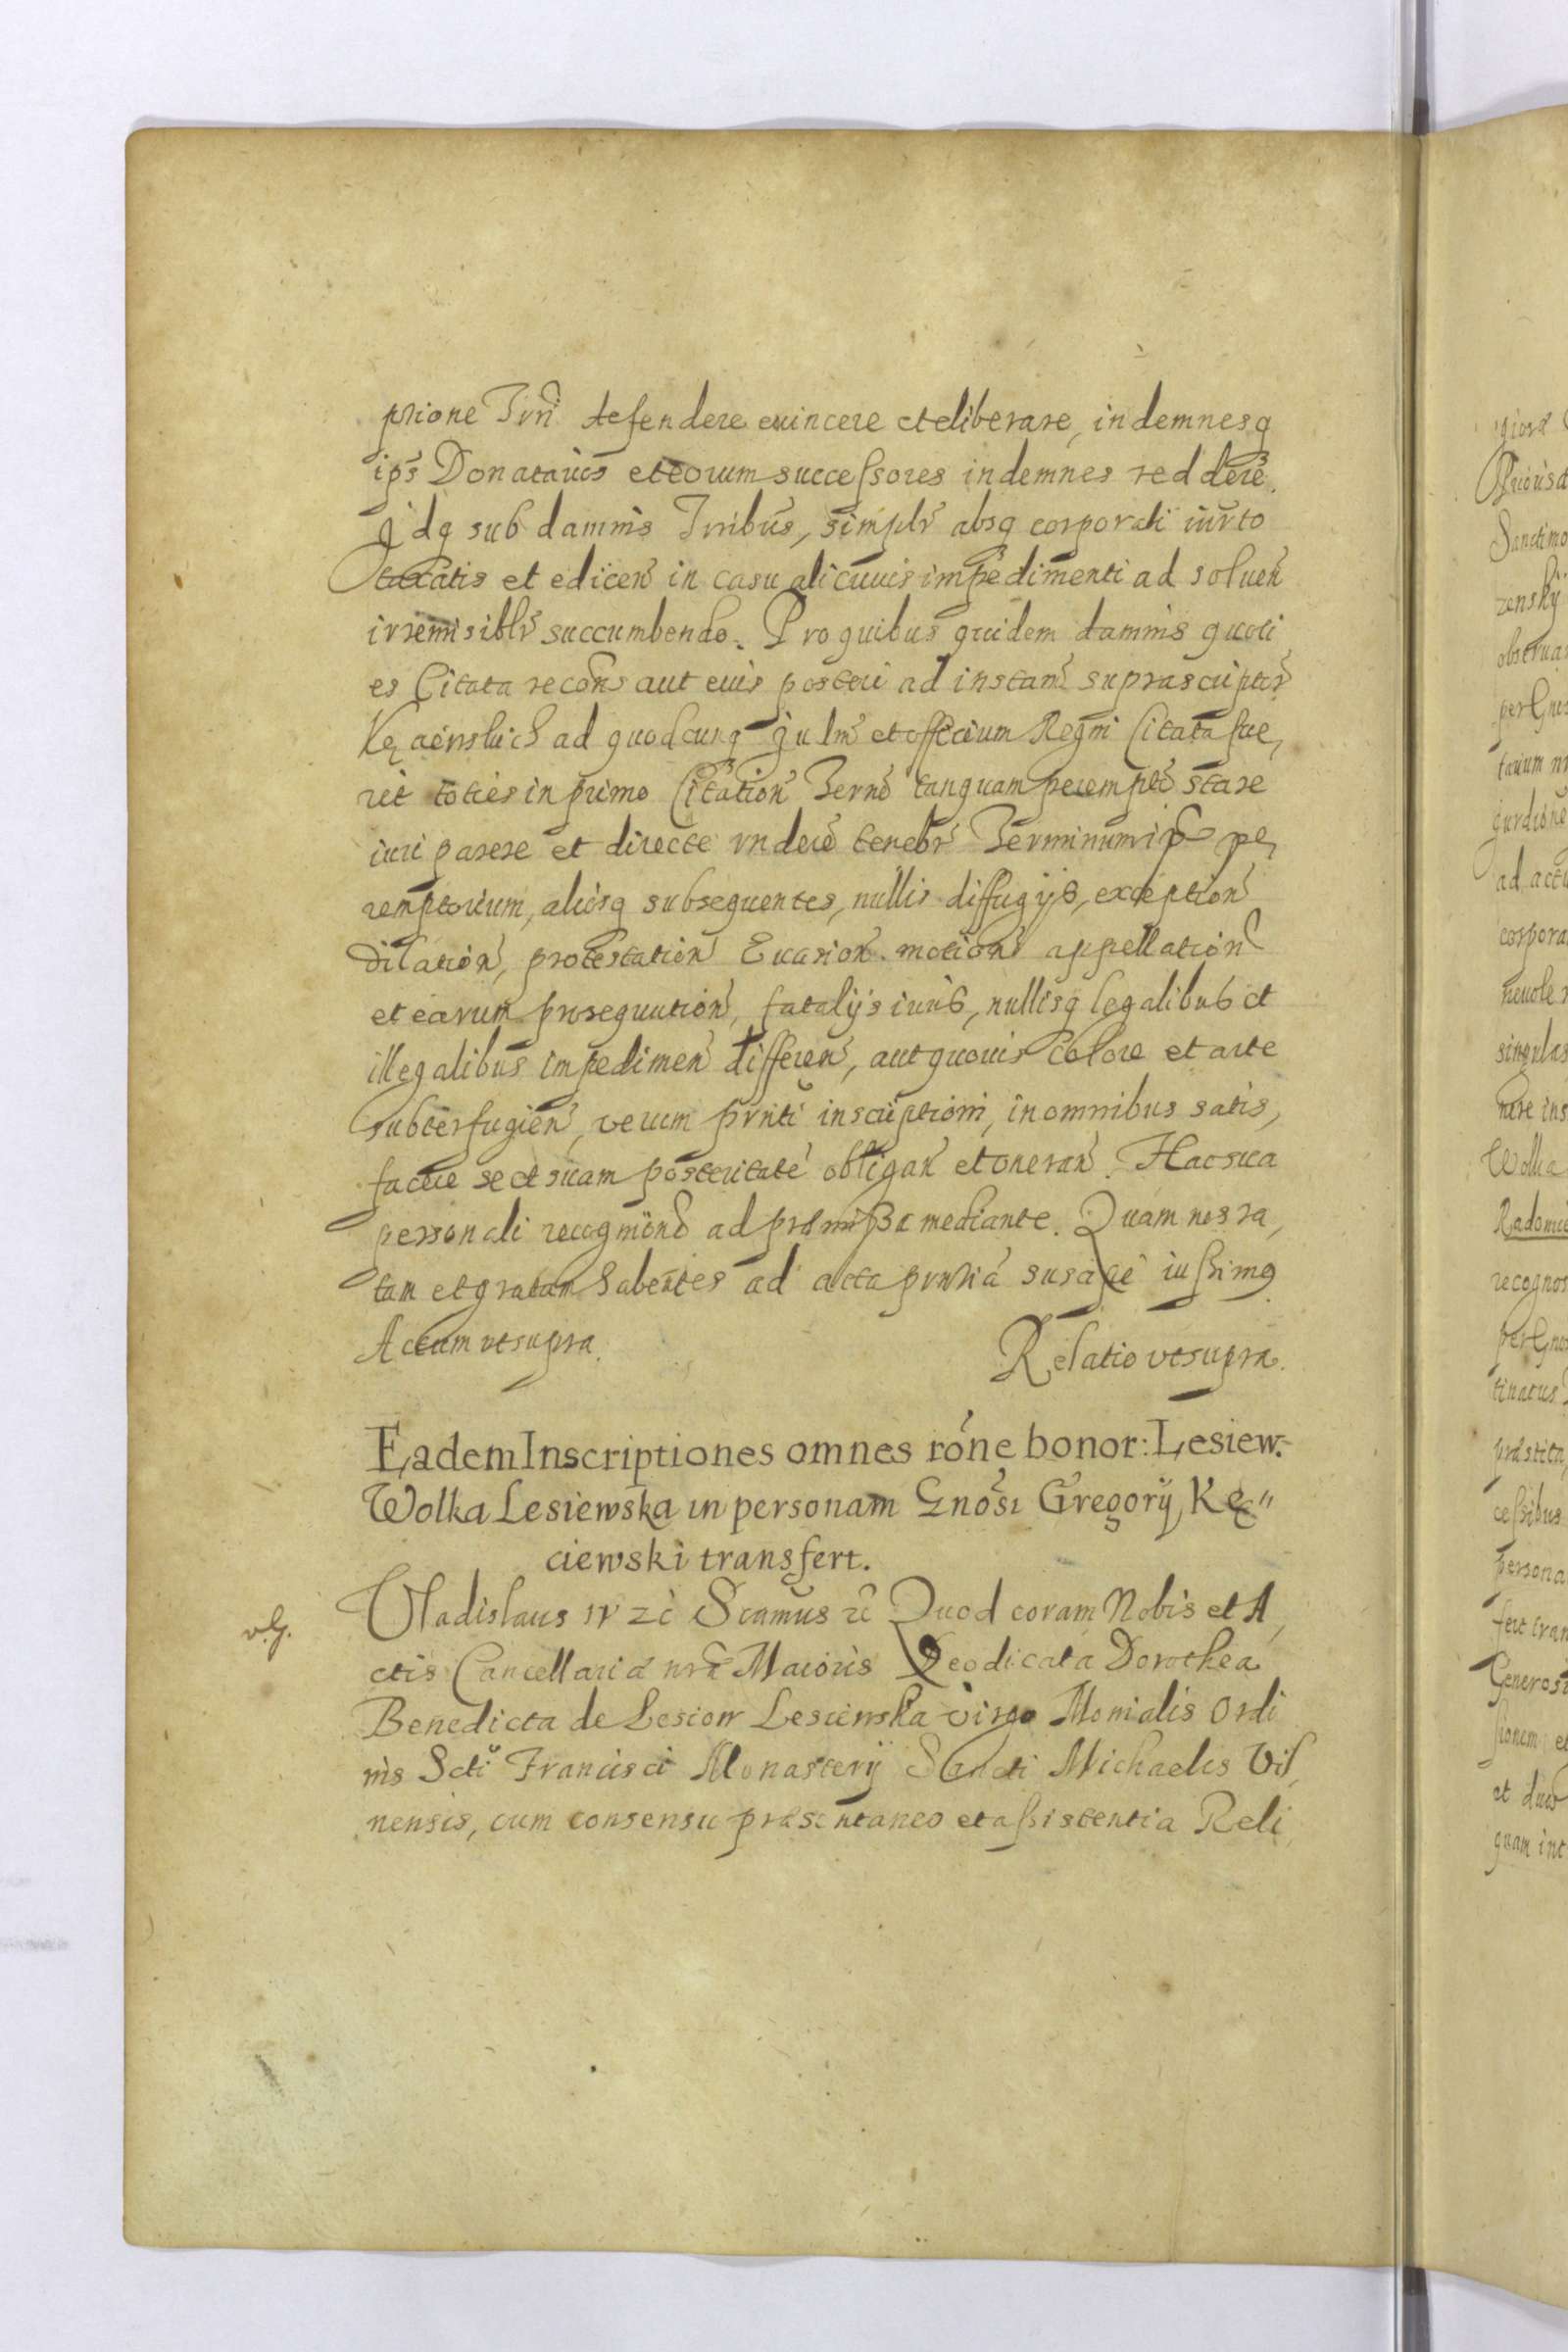 ptione Trri defendere euincere et eliberare, indemnesq
ips Donatarios et eorum successores indemnes reddere.
Idq sub damnis Trribus, simplr absq corporali iurto
taxatis et edicen in casu alicuius impedimenti ad soluen
irremisiblr succumbendo. Pro quibus quidem damnis quoti
es Citata recons aut eius posteri ad instam suprascriptor
Kęciewskich ad quodcunq Iudm et officium Regni Citata fue,
rit toties in primo Citation Termo tanquam perempto stare
iuri parere et directe rndere tenebr Terminum ip pe,
remptorium, aliosq subsequentes, nullis diffugijs, exception
dilation, protestation Euasion motion appellation
et earum prosequution, fatalijs iuris, nullisq legalibus et
illegalibus impedimen differen, aut quouis colore et arte
subterfugien, verum prnti inscriptioni, in omnibus satis,
facere se et suam posteritate obligan et oneran. Hac sua
personali recognitione ad præmissa mediante. Quam nos ra,
tam et gratam habentes ad acta prntia suscipe iussimus
Actum vt supra.
Relatio vt supra.
Eadem Inscriptiones omnes róne bonor: Lesiew.
Wolka Lesiewska in personam Gnosi Gregorij Kę"
ciewski transfert.
v.g.
Vladislaus IV zc Scamus zc Quod coram Nobis et A,
ctis Cancellariæ nræ Maioris Deodicata Dorothea
Benedicta de Lesiow Lesiewska virgo Monialis Ordi
nis Scti Francisci Monasterij Sancti Michaelis Vil,
nensis, cum consensu præsentaneo et assistentia Reli,